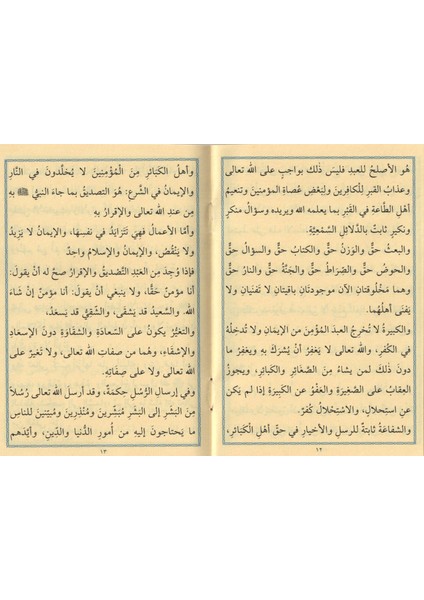 هُو الأصلحُ للعبدِ فليسَ ذٰلك بواجبٍ على الله تعالى
وعذابُ القبرِ للكافِرينَ ولِبَعْضِ عُصاةِ المؤمنينَ وتنعيمُ
أهلِ الطّاعةِ في القَبْرِ بما يعلمه الله ويريده وسؤالُ منكرٍ
ونكيرٍ ثابتٌ بالدّلائلِ السَّمْعِيَّةِ.
والبعثُ حقٌّ والوَزنُ حقٌّ والكتابُ حقٌّ والسؤالُ حقٌّ
والحوضُ حقٌّ والصِّراطُ حقٌّ والجَنّةُ حقٌّ والنارُ حقٌّ
وهما مَخْلُوقتانِ الآن موجودتَانِ باقيتانِ لا تَفْنَيانِ ولا
يَفْنَى أهلُهُما.
والكبيرةُ لا تُخرِجُ العبدَ المؤْمنَ من الإيمَانِ ولا تُدخِلُهُ
في الكُفْرِ، والله تعالى لا يَغفِرُ أنْ يُشرَكَ بهِ ويغفِرُ ما
دونَ ذٰلك لمن يشاءُ مِنَ الصّغائرِ والكبائرِ، ويجوزُ
العِقابُ على الصَّغيرَةِ والعَفْوُ عن الكَبِيرَةِ إذا لم يَكن
عن استحلالٍ، والاسْتِحْلالُ كُفْرٌ.
والشفاعَةُ ثابتةٌ للرسلِ والأخيارِ في حقِّ أهْلِ الكَبائرِ،
١٢
وأهلُ الكَبائرِ مِنَ الْمُؤْمِنِينَ لا يُخلَّدونَ في النَّارِ
والإيمانُ في الشّرعِ: هُوَ التصديقُ بما جاءَ النبيُّ ﷺ بهِ
مِن عندِ الله تعالى والإقرارُ بهِ
وأمّا الأعمالُ فهِيَ تَتَزايَدُ في نفسِهَا، والإيمَانُ لا يَزِيدُ
ولا يَنْقُصُ، والإيمانُ والإسلامُ واحِدٌ
فإذا وُجِدَ مِن العَبْدِ التَّصْديقُ والإقرارُ صحَّ له أنْ يقولَ:
أنا مؤمنٌ حَقًّا، ولا ينبغي أنْ يقولَ: أنا مؤمنٌ إنْ شَاءَ
الله. والسَّعيدُ قد يَشْقَى، والشَّقِيُّ قد يَسعَدُ،
والتغيُّرُ يكونُ على السعادَةِ والشقاوَةِ دونَ الإسعادِ
والإشقَاءِ، وهُما من صفاتِ الله تعالى، ولا تَغيُّرَ على
الله تعالى ولا على صِفاتِهِ.
وفي إرسالِ الرُّسُلِ حِكمَةٌ، وقد أرسلَ الله تعالى رُسُلاً
مِنَ البَشَرِ إلى البَشَرِ مُبَشِّرينَ ومُنْذِرينَ ومُبيِّنينَ للناسِ
ما يَحتاجونَ إليهِ من أمورِ الدُّنيا والدِّينِ، وأيَّدَهم
١٣